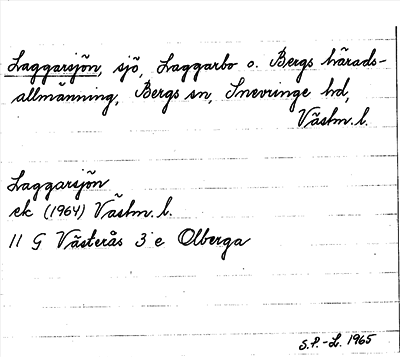 Laggarsjön, sjö, Laggarbo o. Bergs härads-
allmänning, Bergs sn, Snevringe hd,
Västm. l.
Laggarsjön
ek (1964) Västm. l.
11 G Västerås 3 e Olberga
S.P.-L. 1965